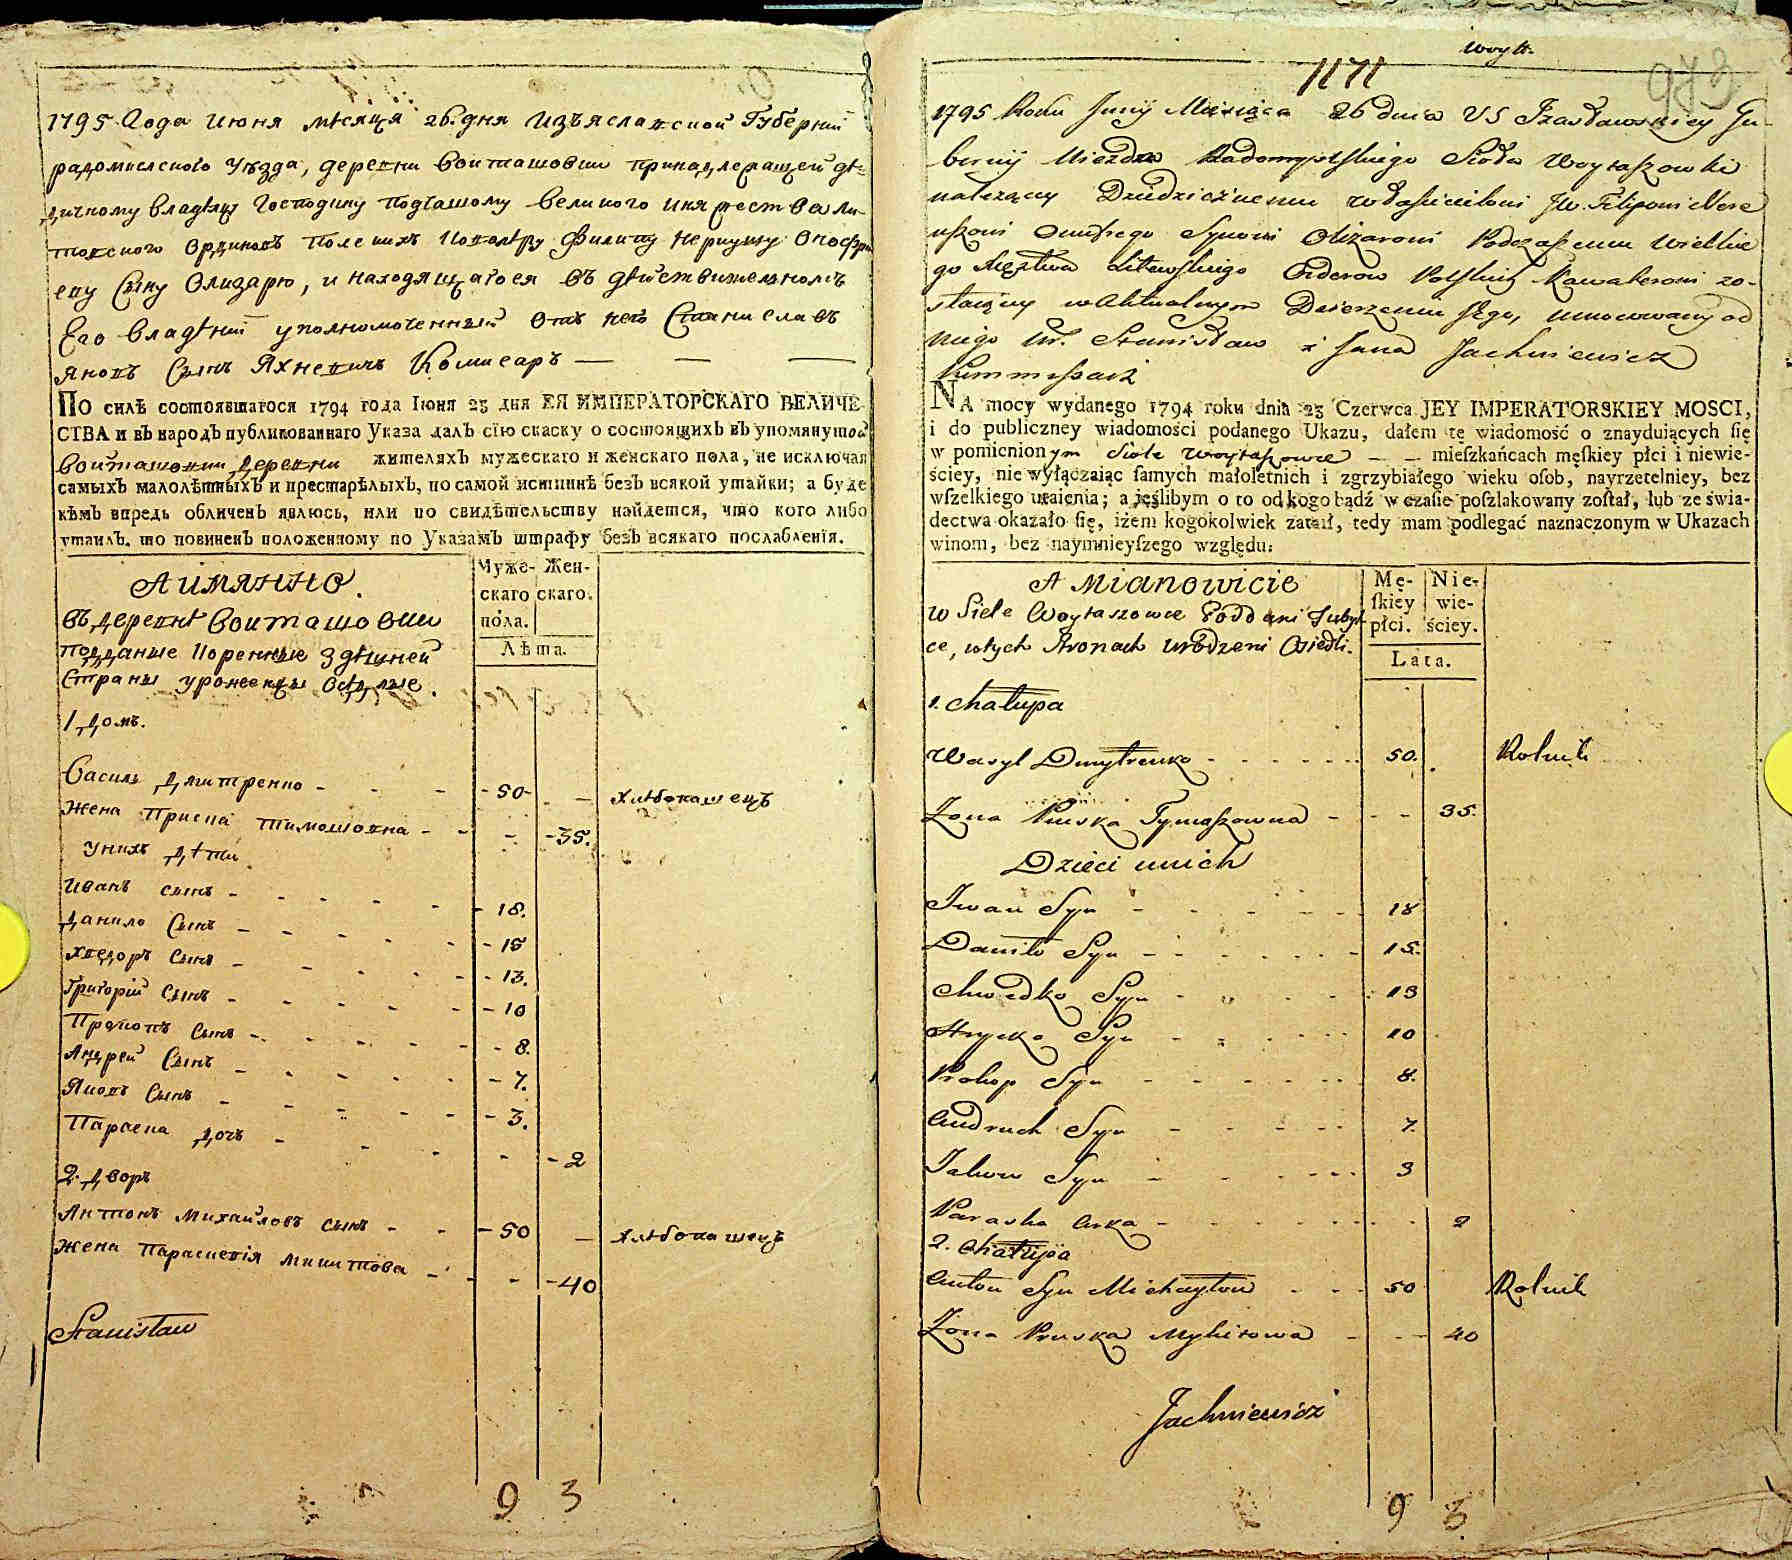 1795 Года Июня мѣсяца 26. дня Изъяславской Губерніи
радомисльского уѣзда, деревни Войташовки принадлежащей дѣ-
дичному владѣлцу Господину подчашому великого княжества Ли-
товского Орденовъ полскихъ Кавалеру Филипу Нериушу Онофри
еву Сыну Олизарю, и находящагося въ дѣйствительномъ
Его владѣніи уполномоченный отъ него Станиславъ
Яновъ Сынъ Яхневичъ Комисаръ — — —
ПО силѣ состоявшагося 1794 года Іюня 23 дня ЕЯ ИМПЕРАТОРСКАГО ВЕЛИЧЕ-
СТВА и въ народъ публикованнаго Указа далъ сію скаску о состоящихъ въ упомянутой
Войташовки деревни жителяхъ мужескаго и женскаго пола, не исключая
самыхъ малолѣтныхъ и престарѣлыхъ, по самой истиннѣ безъ всякой утайки; а буде
кѣмъ впредь обличенъ явлюсь, или по свидѣтельству найдется, что кого либо
утаилъ. то повиненъ положенному по Указамъ штрафу безъ всякаго послабленія.
А имянно.
Муже-скаго пола. Жен-скаго.
Лѣта.
въ деревнѣ Войташовки
подданые Коренные здѣшней
Страны уроженцы осѣдлые.
1 домъ.
Василь Дмитренко - - - 50 - хлѣбопашецъ
жена Приска Тимошовна - - - 35.
у нихъ дѣти
Иванъ сынъ - - - 18.
Данило Сынъ - - - 15
Хведоръ Сынъ - - - 13.
Григорій Сынъ - - - 10
Прокопъ Сынъ - - - 8.
Андрей Сынъ - - - 7.
Яковъ Сынъ - - - 3.
Параска дочь - - - 2
2. дворъ
Антонъ Михайловъ сынъ - - 50 - хлѣбопашецъ
жена Параскевія Микитова - - - 40
Stanisław
9 3
Woyt.
1171
973
1795 Roku Junij Miesiąca 26 dnia VS Izasławskiey Gu-
bernij Uiezdu Radomyslskiego Sioła Woytaszowki
należący Dziedzicznemu własicielowi JW. Filipowi Nere
uszowi Onufrego Synowi Olizarowi Podczaszemu Wielkie
go Xięztwa Litewskiego Orderow Polskich Kawalerowi zo-
staiący w aktualnym Dzierzeniu Jego, umocowany od
niego Ur. Stanisław z Jana Jachniewicz
Kommissarz
NA mocy wydanego 1794 roku dnia 23 Czerwca JEY IMPERATORSKIEY MOSCI,
i do publiczney wiadomości podanego Ukazu, dałem tę wiadomość o znayduiących się
w pomienionym Siole Woytaszowce — — mieszkańcach męskiey płci i niewie-
ściey, nie wyłączaiąc samych małoletnich i zgrzybiałego wieku osob, nayrzetelniey, bez
wszelkiego utaienia; a jeślibym o to od kogo bądź w czasie poszlakowany został, lub ze świa-
dectwa okazało się, iżem kogokolwiek zataił, tedy mam podlegać naznaczonym w Ukazach
winom, bez naymnieyszego względu.
A Mianowicie
Mę-skiey płci. Nie-wie-ściey.
Lata.
w Siele Woytaszowce Poddani Tuby
ce, w tych Stronach urodzeni Osiedli.
1. Chałupa
Wasyl Dmytrenko - - - 50. Rolnik
Zona Pruska Tymoszowna - - - 35.
Dzieci u nich
Iwan Syn - - - 18
Daniło Syn - - - 15.
Chwedko Syn - - - 13
Hrycko Syn - - - 10
Prokop Syn - - - 8.
Andruch Syn - - - 7.
Jakow Syn - - - 3
Paraska Curka - - - 2
2. Chałupa
Anton Syn Michayłow - - - 50 Rolnik
Zona Pruska Mykitowa - - - 40
Jachniewicz
9 3